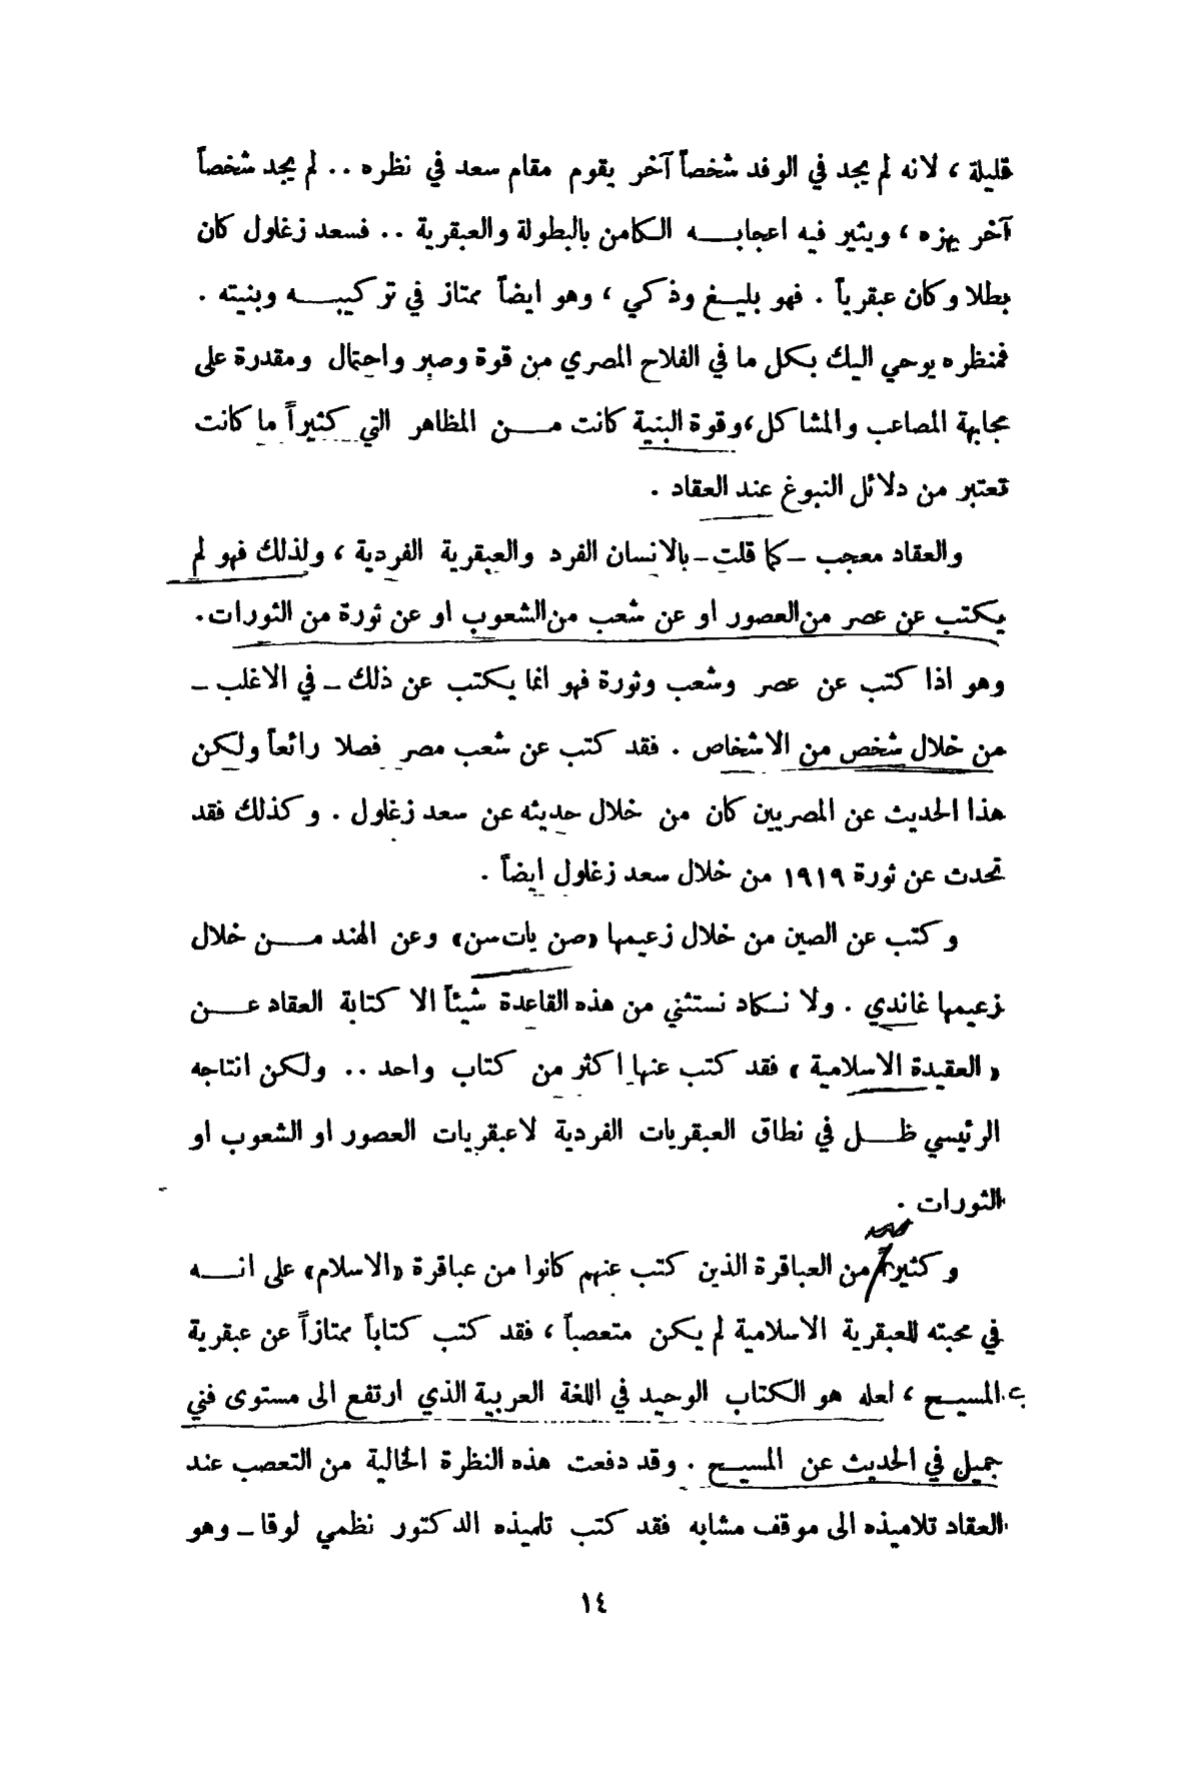 قليلة ، لانه لم يجد في الوفد شخصاً آخر يقوم مقام سعد في نظره .. لم يجد شخصاً
آخر يهزه ، ويثير فيه اعجابـه الكامن بالبطولة والعبقرية .. فسعد زغلول كان
بطلا وكان عبقرياً . فهو بليـغ وذكي ، وهو ايضاً ممتاز في تركيبـه وبنيته .
فمنظره يوحي اليك بكل ما في الفلاح المصري من قوة وصبر واحتمال ومقدرة على
مجابهة المصاعب والمشاكل ، وقوة البنية كانت مـن المظاهر التي كثيراً ما كانت
تعتبر من دلائل النبوغ عند العقاد .
والعقاد معجب – كما قلت – بالانسان الفرد والعبقرية الفردية ، ولذلك فهو لم
يكتب عن عصر من العصور او عن شعب من الشعوب او عن ثورة من الثورات .
وهو اذا كتب عن عصر وشعب وثورة فهو انما يكتب عن ذلك – في الاغلب –
من خلال شخص من الاشخاص . فقد كتب عن شعب مصر فصلا رائعاً ولكن
هذا الحديث عن المصريين كان من خلال حديثه عن سعد زغلول . وكذلك فقد
تحدث عن ثورة ١٩١٩ من خلال سعد زغلول ايضاً .
وكتب عن الصين من خلال زعيمها «صن يات سن» وعن الهند مـن خلال
زعيمها غاندي . ولا نـكاد نستثني من هذه القاعدة شيئاً الا كتابة العقاد عـن
« العقيدة الاسلامية » فقد كتب عنها اكثر من كتاب واحد .. ولكن انتاجه
الرئيسي ظـل في نطاق العبقريات الفردية لا عبقريات العصور او الشعوب او
الثورات .
وكثير من العباقرة الذين كتب عنهم كانوا من عباقرة «الاسلام» على انـه
في محبته للعبقرية الاسلامية لم يكن متعصباً ، فقد كتب كتاباً ممتازاً عن عبقرية
المسيـح ، لعله هو الكتاب الوحيد في اللغة العربية الذي ارتفع الى مستوى فني
جميل في الحديث عن المسيـح . وقد دفعت هذه النظرة الخالية من التعصب عند
العقاد تلاميذه الى موقف مشابه فقد كتب تلميذه الدكتور نظمي لوقا – وهو
١٤